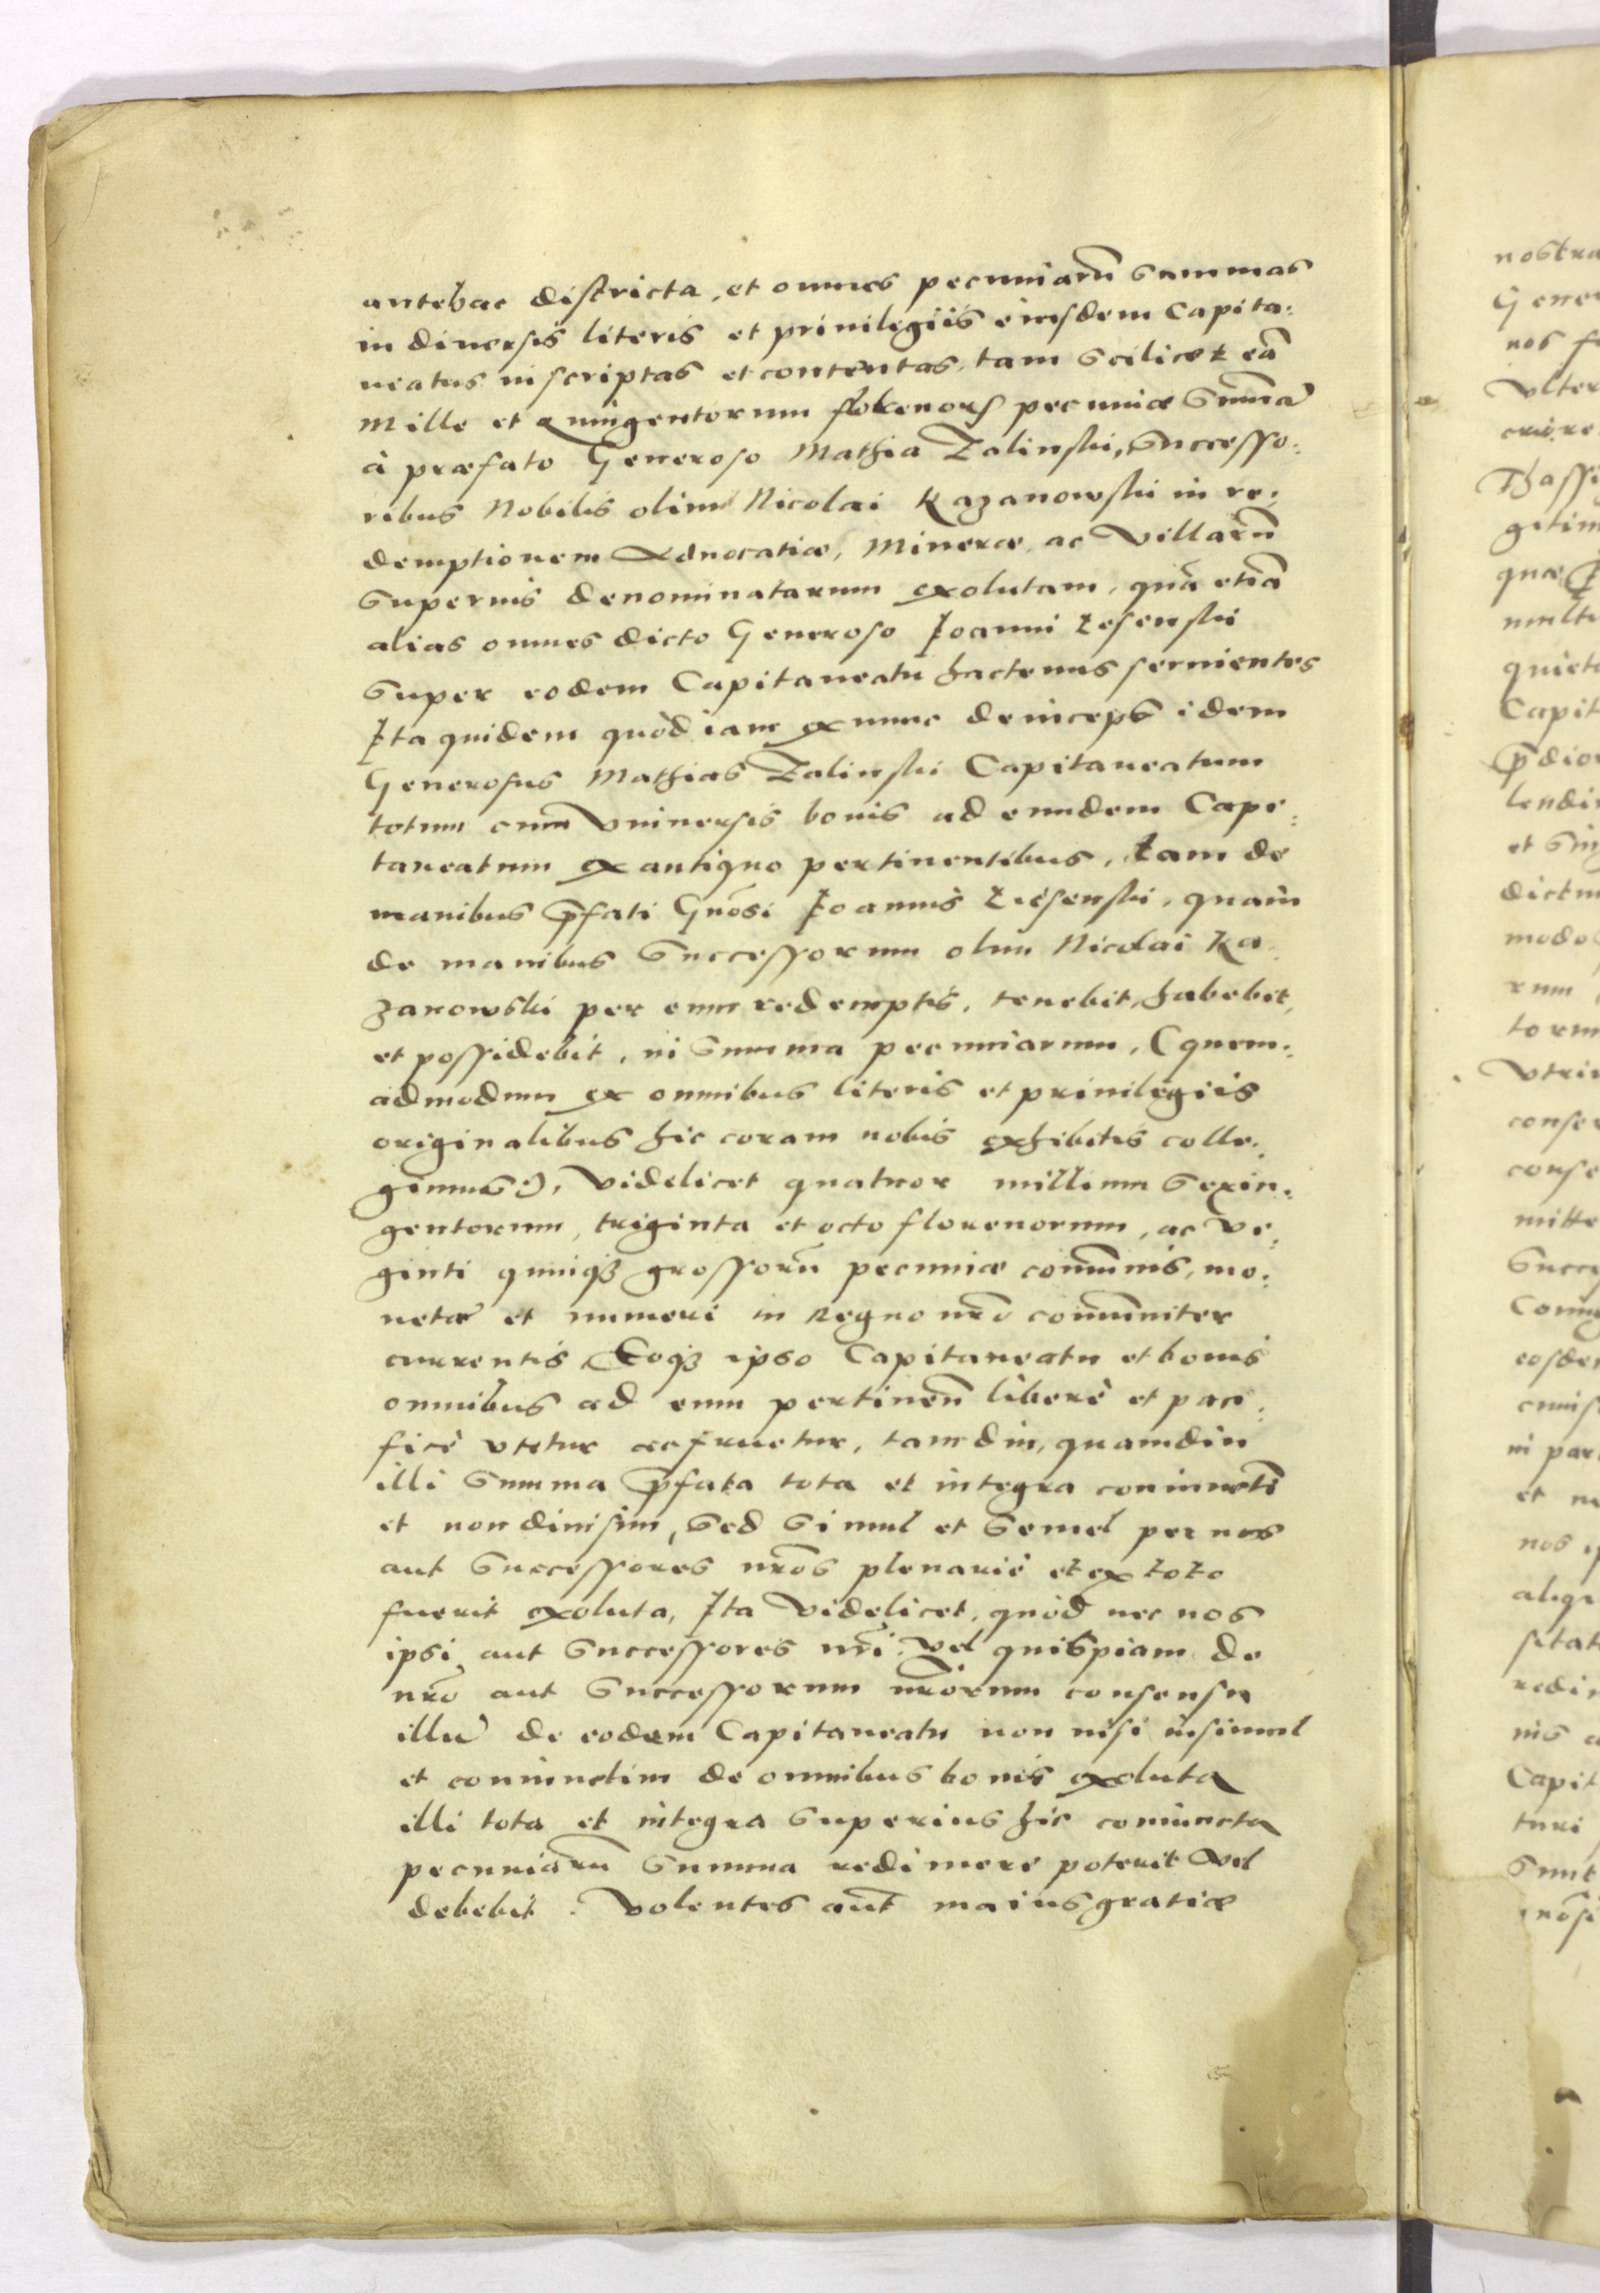 antehac districta, et omnes pecuniarũ summas
in diuersis literis et priuilegiis eiusdem Capita:
neatus inscriptas et contentas, tam scilicet eã
Mille et Quingentorum florenorʒ pecuniæ sum̃a
à præfato Generoso Mathia Zalinski, Successo:
ribus Nobilis olim Nicolai Kazanowski in re:
demptionem Aduocatiæ, Mineræ, ac Villarũ
superius denominatarum exolutam, quã etiã
alias omnes dicto Generoso Joanni
super eodem Capitaneatu hactenus seruientes
Ita quidem quòd iam ex nunc deinceps idem
Generosus Mathias Zalinski Capitaneatum
totum cum Vniuersis bonis ad eundem Capi:
taneatum ex antiquo pertinentibus, tam de
manibus p̃fati Gñosi Joannis quàm
de manibus Successorum olim Nicolai Ka
zanowski per eum redemptis, tenebit, habebit,
et possidebit, in summa pecuniarum, (quem:
admodum ex omnibus literis et priuilegiis
originalibus hic coram nobis exhibitis colle:
gimus), Videlicet quatuor millium sexin:
gentorum, triginta et octo florenorum, ac Vi:
ginti quinqʒ grossorũ pecuniæ com̃unis, mo:
netæ et numeri in Regno nr̃o com̃uniter
currentis, Eoqʒ ipso Capitaneatu et bonis
omnibus ad eum pertineñ liberè et paci:
ficè vtetur ac fruetur, tamdiu, quamdiu
illi summa p̃fata tota et integra coniunctĩ
et non diuisim, sed simul et semel per nos
aut Successores nr̃os plenariè et ex toto
fuerit exoluta, Ita Videlicet, quòd nec nos
ipsi aut Successores nr̃i vel quispiam de
nr̃o aut Successorum nr̃orum consensu
illũ de eodem Capitaneatu non nisi insimul
et coniunctim de omnibus bonis exoluta
illi tota et integra superius hic coniuncta
pecuniarũ summa redimere poterit vel
debebit. Volentes aũt maius gratiæ